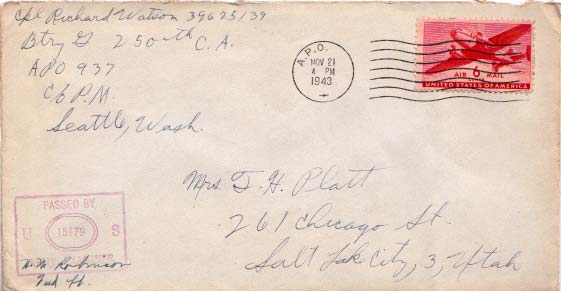 Cpl Richard Watson 39675139
Btry G 250th C.A.
APO 937
c/o P.M.
Seattle, Wash.
A.P.O.
NOV 21
4 PM
1943
6
AIR MAIL
UNITED STATES OF AMERICA
Mrs T. H. Platt
261 Chicago St.
Salt Lake City, 3, Utah
PASSED BY
U 15179 S
W. M. Robinson